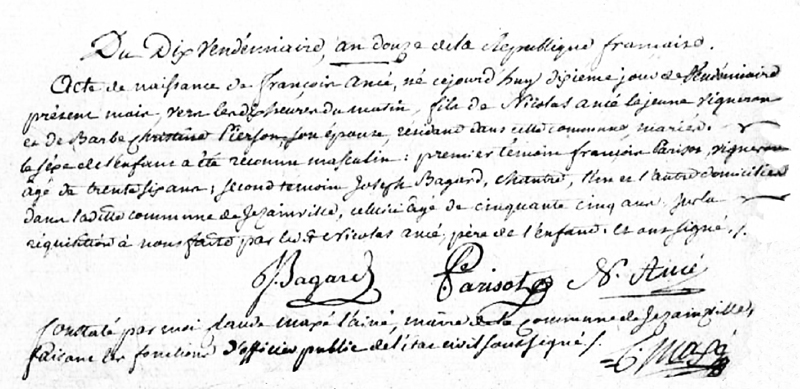 Du Dix vendémiaire, an douze de la République francaise.
Acte de naissance de françois Ancé, né cejourd'huy dixieme jour de Vendémiaire
présent mois, vers les dix heures du matin, fils de Nicolas ancé lejeune vigneron
et de Barbe Christine Pierson, son épouse, résidant dans cette commune, mariés.
le sexe de l'enfant a été reconnu masculin : premier témoin françois Parisot, vigneron
âgé de trente six ans ; second temoin Joseph Bagard, chantre, l'un et l'autre domiciliés
dans la ditte commune de Jezainville, celui ci âgé de cinquante cinq ans. sur la
réquisition à nous faitte par led.t Nicolas ancé, père de l'enfant. et ont signé /.
J Bagard Parisot N. Ancé
Constaté par moi claude maxé l'ainé, maire de la commune de Jezainville,
faisant les fonctions d'officier public de l'état civil soussigné /.
C. Maxé